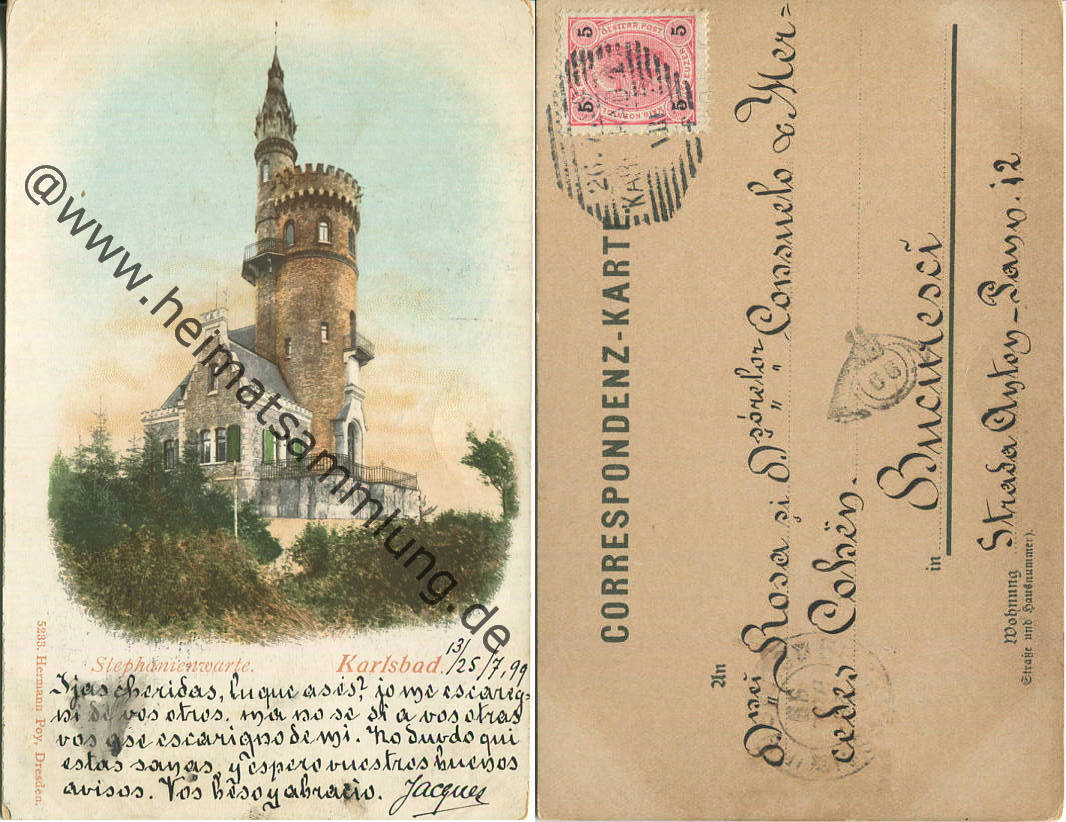 @www.heimatsammlung.de
Stephanienwarte.
Karlsbad.
13/25/7,99
5233. Hermann Poy, Dresden.
Ijas cheridas, luque asis? jo me escarig-
ni de vos otros. ma no se si a vos otras
vos gse escarigno de mi. No duvdo qui
estas sanas, y espero vuestros buenos
avisos. Vos beso y abracio. Jacques
5 OESTERR. POST 5
5 5
CORRESPONDENZ-KARTE
An Rosa si Consuelo & Mer=
cedes Cohën.
in Bucuresci
Wohnung Strada Antoy-Pann. 12
(Straße und Hausnummer).